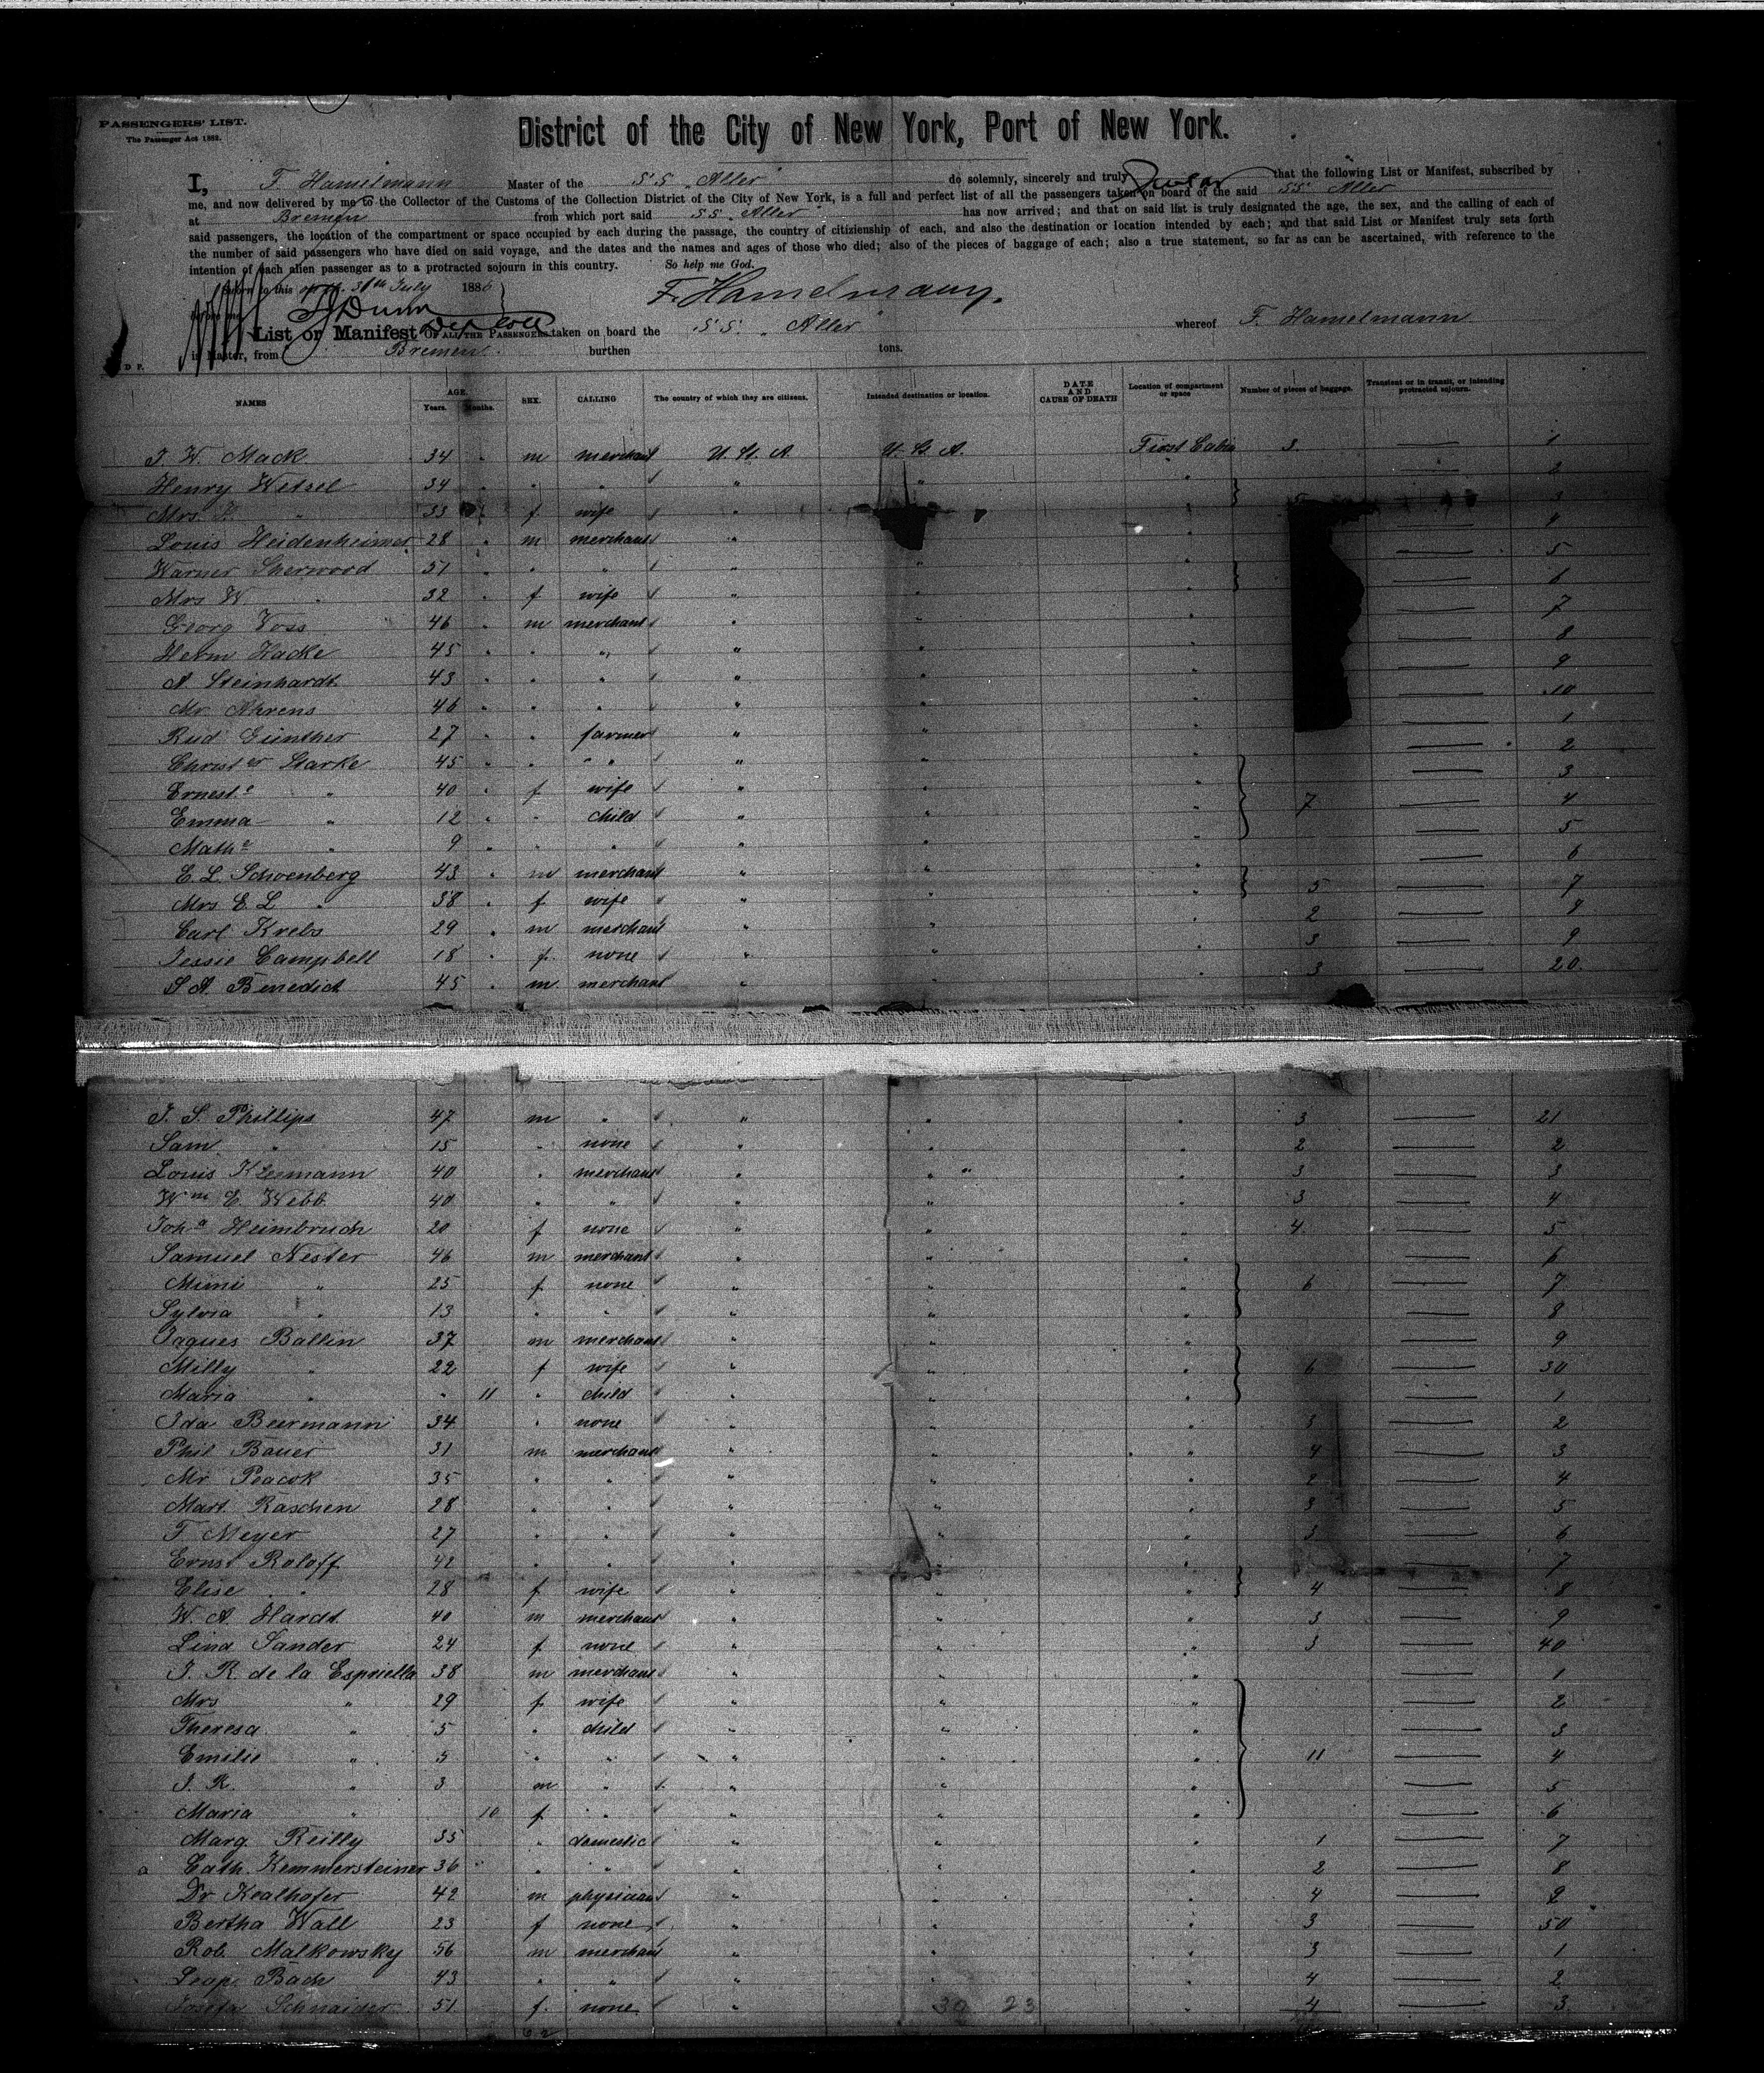 PASSENGERS' LIST.
The Passenger Act 1882.
District of the City of New York, Port of New York.
I, F. Hamelmann Master of the SS „Aller" do solemnly, sincerely and truly that the following List or Manifest, subscribed by
me, and now delivered by me to the Collector of the Customs of the Collection District of the City of New York, is a full and perfect list of all the passengers taken on board of the said SS Aller
at Bremen from which port said SS „Aller" has now arrived; and that on said list is truly designated the age, the sex, and the calling of each of
said passengers, the location of the compartment or space occupied by each during the passage, the country of citizienship of each, and also the destination or location intended by each; and that said List or Manifest truly sets forth
the number of said passengers who have died on said voyage, and the dates and the names and ages of those who died; also of the pieces of baggage of each; also a true statement, so far as can be ascertained, with reference to the
intention of each alien passenger as to a protracted sojourn in this country. So help me God.
Sworn to this 31th July 1886
F. Hamelmann.
List or Manifest OF ALL THE PASSENGERS taken on board the SS. „Aller" whereof F. Hamelmann
is Master, from Bremen. burthen tons.
NAMES AGE. Years. Months. SEX. CALLING The country of which they are citizens. Intended destination or location. DATE AND CAUSE OF DEATH Location of compartment or space Number of pieces of baggage. Transient or in transit, or intending protracted sojourn.
J. W. Mack 34 " m merchant U. St. A. U. St. A. First Cabin 3. — 1
Henry Wetzel 34 " " " " " " — 2
Mrs. " 33 " f wife " " 5 — 3
Louis Heidenheimer 28 " m merchant " " — 4
Warner Sherwood 51 " " " " " " — 5
Mrs W. " 32 " f wife " " " — 6
Georg Voss 46 " m merchant " " " — 7
Herm Hacke 45 " " " " " " — 8
A Steinhardt 43 " " " " " " — 9
Mr. Ahrens 46 " " " " " " — 10
Rud Günther 27 " " farmer " " " — 1
Christ er Starke 45 " " " " " " — 2
Ernest e " 40 " f wife " " " — 3
Emma " 12 " " child " " " 7 — 4
Math e " 9 " " " " " " — 5
E. L. Schoenberg 43 " m merchant " " " — 6
Mrs E. L " 38 " f wife " " " 5 — 7
Carl Krebs 29 " m merchant " " " 2 — 8
Jessie Campbell 18 " f. none " " " 3 — 9
S. A. Benedict 45 " m. merchant " " " 3 — 20.
J. S. Phillips 47 m " " " " 3 — 21
Sam. " 15 " none " " " 2 — 2
Louis Kleemann 40 " merchant " " " 3 — 3
Wm E. Webb 40 " " " " " 3 — 4
Joh.a Heimbruch 20 f none " " " 4. — 5
Samuel Nester 46 m merchant " " " — 6
Mimi " 25 f none " " " 6 — 7
Sylvia " 13 " " " " " — 8
Jaques Ballin 37 m merchant " " " — 9
Milly " 22 f wife " " " 6 — 30
Maria " " 11 " child " " " — 1
Ida Beermann 34 " none " " " 3 — 2
Phil Bauer 31 m merchant " " " 4 — 3
Mr Peacok 35 " " " " " 2 — 4
Mart. Raschen 28 " " " " " 3 — 5
F. Meyer 27 " " " " " 3 — 6
Ernst Roloff 42 " " " " " — 7
Elise " 28 f wife " " " 4 — 8
W. A. Hardt 40 m merchant " " " 3 — 9
Lina Sander 24 f none " " " 3 — 40
J. R. de la Espriella 38 m merchant " " " — 1
Mrs " 29 f wife " " " — 2
Theresa " 5 " child " " " — 3
Emilie " 5 " " " " " 11 — 4
J. R. " 3 m " " " " — 5
Maria " 10 f " " " " — 6
Marg. Reilly 35 " domestic " " " 1 — 7
Cath. Kemmersteiner 36 " " " " " 2 — 8
Dr Kealhofer 42 m physician " " " 4 — 9
Bertha Wall 23 f none " " " 3 — 50
Rob. Malkowsky 56 m merchant " " " 3 — 1
Leop. Bach 43 " " " " " 4 — 2
Josefa Schnaider 51 f. none " " 4 — 3.
30 23